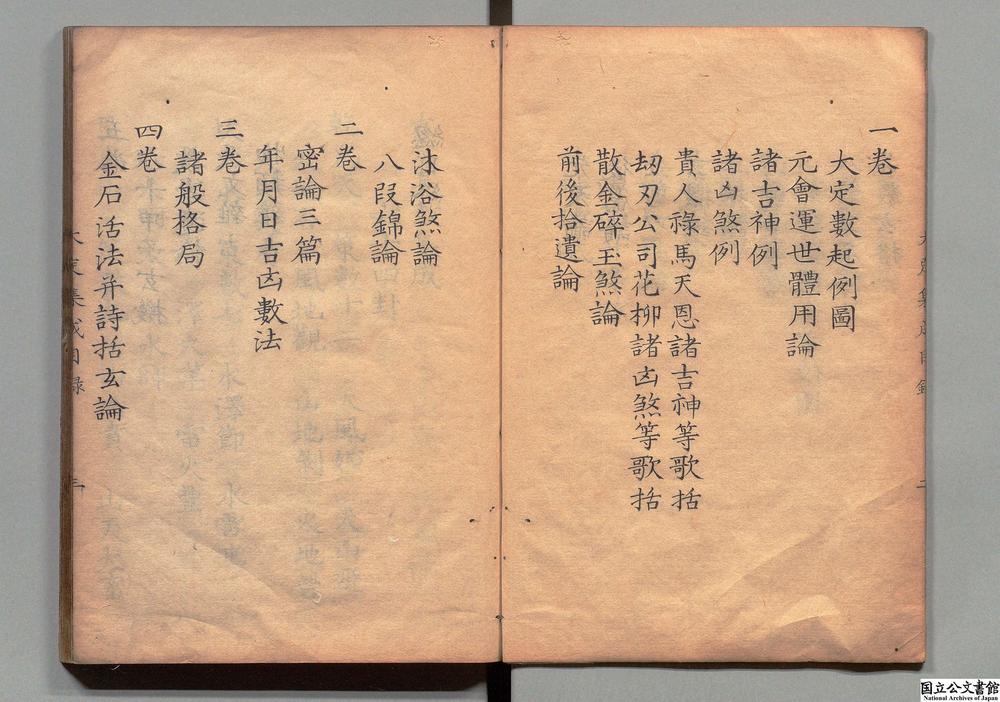 一卷
大定數起例圖
元會運世體用論
諸吉神例
諸凶煞例
貴人祿馬天恩諸吉神等歌括
刧刃公司花柳諸凶煞等歌括
散金碎玉煞論
前後拾遺論
沐浴煞論
八段錦論
二卷
密論三篇
年月日吉凶數法
三卷
諸般格局
四卷
金石活法并詩括玄論
国立公文書館
National Archives of Japan